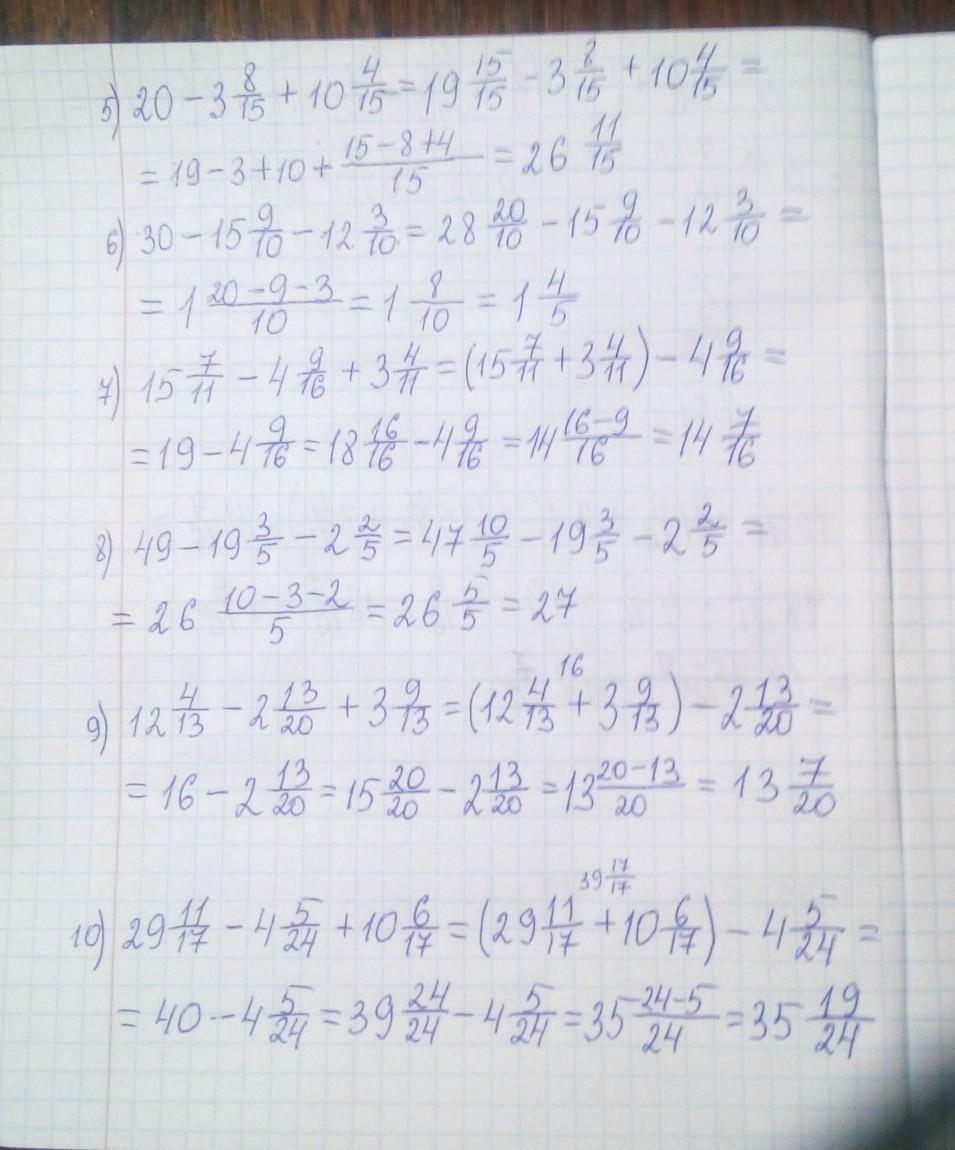 5) 20 - 3 8/15 + 10 4/15 = 19 15/15 - 3 8/15 + 10 4/15 =
= 19 - 3 + 10 + (15 - 8 + 4)/15 = 26 11/15
6) 30 - 15 9/10 - 12 3/10 = 28 20/10 - 15 9/10 - 12 3/10 =
= 1 (20 - 9 - 3)/10 = 1 8/10 = 1 4/5
7) 15 7/11 - 4 9/16 + 3 4/11 = (15 7/11 + 3 4/11) - 4 9/16 =
= 19 - 4 9/16 = 18 16/16 - 4 9/16 = 14 (16-9)/16 = 14 7/16
8) 49 - 19 3/5 - 2 2/5 = 47 10/5 - 19 3/5 - 2 2/5 =
= 26 (10 - 3 - 2)/5 = 26 5/5 = 27
16
9) 12 4/13 - 2 13/20 + 3 9/13 = (12 4/13 + 3 9/13) - 2 13/20 =
= 16 - 2 13/20 = 15 20/20 - 2 13/20 = 13 (20-13)/20 = 13 7/20
39 17/17
10) 29 11/17 - 4 5/24 + 10 6/17 = (29 11/17 + 10 6/17) - 4 5/24 =
= 40 - 4 5/24 = 39 24/24 - 4 5/24 = 35 (24-5)/24 = 35 19/24